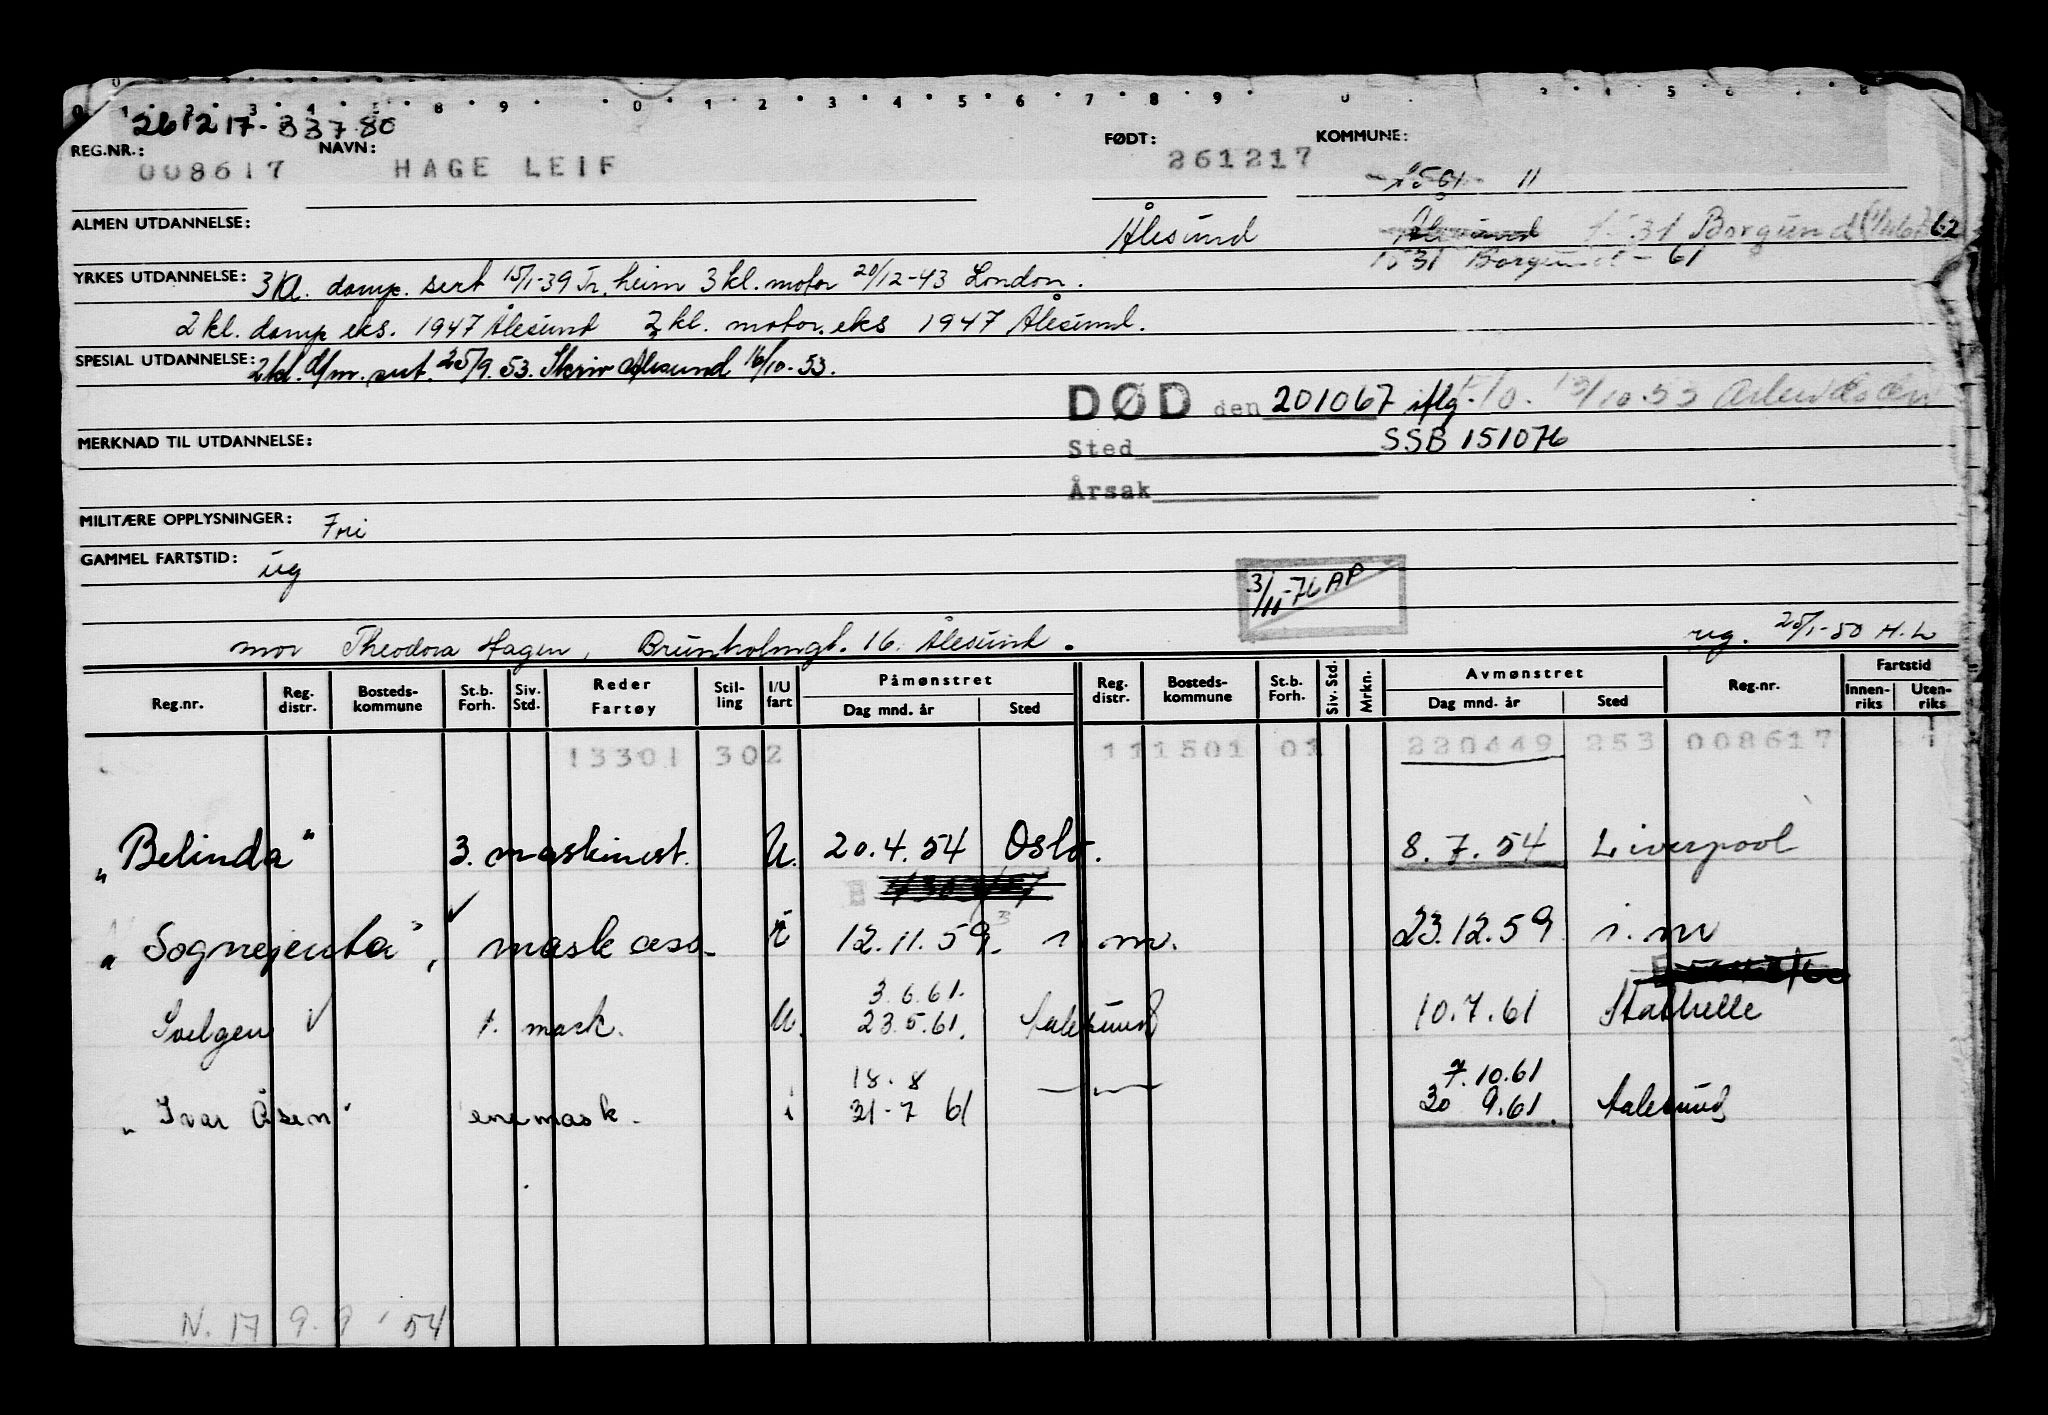 261217-33780
REG.NR.: NAVN: FØDT: KOMMUNE:
008617 HAGE LEIF 261217
11
ALMEN UTDANNELSE: Ålesund Ålesund 1531 Borgund
1531 Borgund - 61
YRKES UTDANNELSE: 3 kl. damp. sert 15/1-39 Tr.heim 3 kl. motor 20/12-43 London.
2 kl. damp eks. 1947 Ålesund 2 kl. motor. eks 1947 Ålesund.
SPESIAL UTDANNELSE: 2 kl. d/m. sert. 25/9.53. Skriv Ålesund 16/10-53.
DØD den 201067 iflg. 13/10-53
MERKNAD TIL UTDANNELSE: Sted SSB 151076
Årsak
MILITÆRE OPPLYSNINGER: Fri
GAMMEL FARTSTID: ug
3/11-76 AP
mor Theodora Hagen, Brunholmgt. 16. Ålesund. reg. 25/1-50 H.L
Reg.nr. Reg. distr. Bosteds-kommune St.b. Forh. Siv. Std. Reder Fartøy Stil-ling I/U fart Påmønstret Dag mnd. år Sted Reg. distr. Bosteds-kommune St.b. Forh. Siv. Std. Mrkn. Avmønstret Dag mnd. år Sted Reg.nr. Fartstid Innen-riks Uten-riks
13301 302 111501 01 220449 253 008617
"Belinda" 3. maskinist. U. 20.4.54 Oslo. 8.7.54 Liverpool
"Sognejenta", mask ass. 12.11.59. i.m. 23.12.59 i.m
3.6.61.
Svelgen 1. mask. U. 23.5.61. Aalesund 10.7.61 Stathelle
18.8 7.10.61
"Ivar Åsen" enemask. i 31-7 61 —"— 30 9.61. Aalesund
N. 17 9. 54